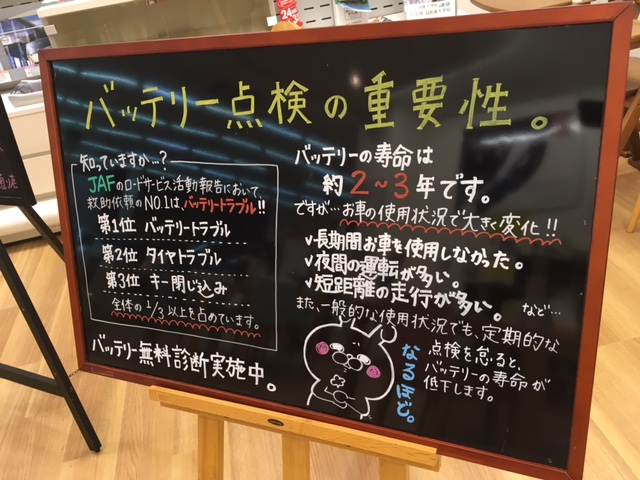 バッテリー点検の重要性。
知っていますか…?
JAFのロードサービス活動報告において、
救助依頼のNO.1は、バッテリートラブル!!
第1位 バッテリートラブル
第2位 タイヤトラブル
第3位 キー閉じ込み
全体の1/3以上を占めています。
バッテリー無料診断実施中。
バッテリーの寿命は
約2~3年です。
ですが…お車の使用状況で大きく変化!!
✓長期間お車を使用しなかった。
✓夜間の運転が多い。
✓短距離の走行が多い。
など…
また、一般的な使用状況でも、定期的な
点検を怠ると、
バッテリーの寿命が
低下します。
なるほど。